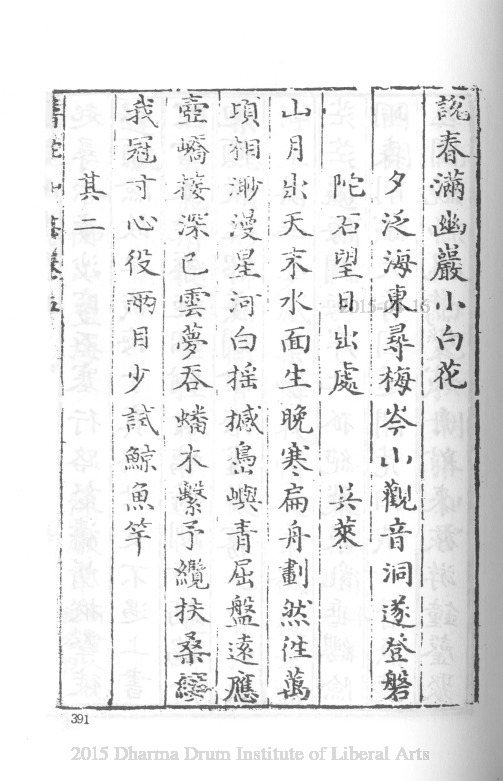 說春滿幽巖小白花
夕泛海東尋梅岑山觀音洞遂登磐
陀石望日出處 吳萊
山月出天末水面生晚寒扁舟劃然往萬
頃相渺漫星河白搖撼島嶼青屈盤遠應
壺嶠接深已雲夢吞蟠木繫予纜扶桑纓
我冠寸心役兩目少試鯨魚竿
其二
391
2015 Dharma Drum Institute of Liberal Arts